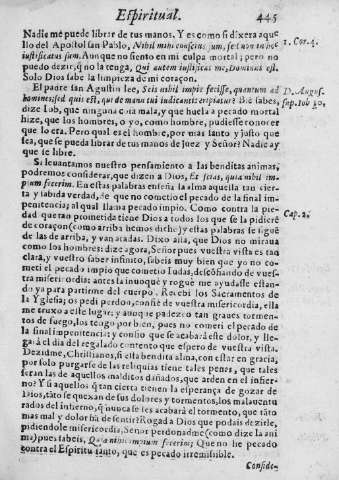 Espiritual. 445
Nadie me puede librar de tus manos. Y es como si dixera aque
llo del Apostol san Pablo, Nihil mihi conscius sum, sed non in hoc
1. Cor. 4.
iustificatus sum. Aunque no siento en mi culpa mortal; pero no
puedo dezir, q̃ no la tenga, Qui autem iustificat me, Dominus est.
Solo Dios sabe la limpieza de mi coraçon.
El padre san Agustin lee, Scis nihil impie fecisse, quantum ad
D. Augus.
homines, sed quis est, qui de manu tui iudicantis eripiatur? Biẽ sabes,
sup. Iob 10.
dize Iob, que ninguna cosa mala, y que huela a pecado mortal
hize, que los hombres, o yo, como hombre, pudiesse conocer
que lo era. Pero qual es el hombre, por mas santo y justo que
sea, que se pueda librar de tus manos de Iuez y Señor? Nadie ay
que se libre.
Si leuantamos nuestro pensamiento a las benditas animas,
podremos considerar, que dizen a Dios, Et scias, quia nihil im-
pium fecerim. En estas palabras enseña la alma aquella tan cier-
ta y sabida verdad, de que no cometio el pecado de la final im-
penitencia; al qual llama pecado impio. Como contra la pie-
dad que tan prometida tiene Dios a todos los que se la pidierẽ
Cap. 2.
de coraçon (como arriba hemos dicho) y estas palabras se siguẽ
de las de arriba, y van atadas. Dixo alla, que Dios no miraua
como los hombres: dize agora, Señor pues vuestra vista es tan
clara, y vuestro saber infinito, sabeis muy bien que yo no co-
meti el pecado impio que cometio Iudas, descõfiando de vues-
tra misericordia: antes la inuoquè y roguè me ayudasse estan-
do ya para partirme del cuerpo. Recebi los Sacramentos de
la Yglesia; os pedi perdon, confiè de vuestra misericordia, ella
me truxo a este lugar; y aunque padezco tan graues tormen-
tos de fuego, los tengo por bien, pues no cometi el pecado de
la final impenitencia; y confio que se acabarà este dolor, y lle-
garà el dia del regalado contento que espero de vuestra vista.
Dezidme, Christianos, si esta bendita alma, con estar en gracia,
por solo purgarse de las reliquias tiene tales penas, que tales
seran las de aquellos malditos dañados, que arden en el infier-
no? Y si aquellos q̃ tan cierta tienen la esperança de gozar de
Dios, tãto se quexan de sus dolores y tormentos, los malauentu
rados del infierno, q̃ nunca se les acabarà el tormento, que tãto
mas mal y dolor hã de sentir? Rogad a Dios que podais dezirle,
pidiendole misericordia, Señor perdonadme (como dize la ani
ma) pues sabeis, Quia nihil impium fecerim; Que no he pecado
contra el Espiritu santo, que es pecado irremissible.
Conside-